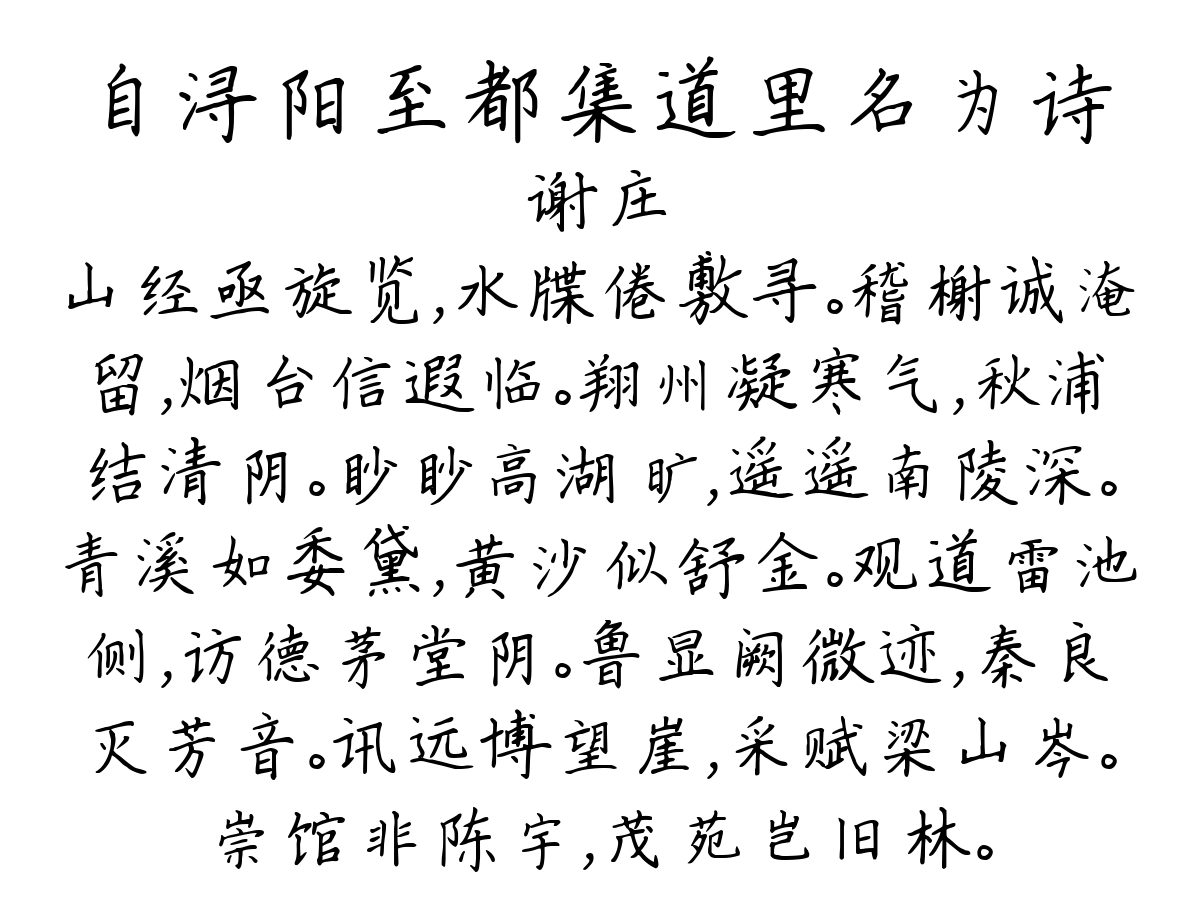 自浔阳至都集道里名为诗
谢庄
山经亟旋览,水牒倦敷寻。稽榭诚淹
留,烟台信遐临。翔州凝寒气,秋浦
结清阴。眇眇高湖旷,遥遥南陵深。
青溪如委黛,黄沙似舒金。观道雷池
侧,访德茅堂阴。鲁显阙微迹,秦良
灭芳音。讯远博望崖,采赋梁山岑。
崇馆非陈宇,茂苑岂旧林。